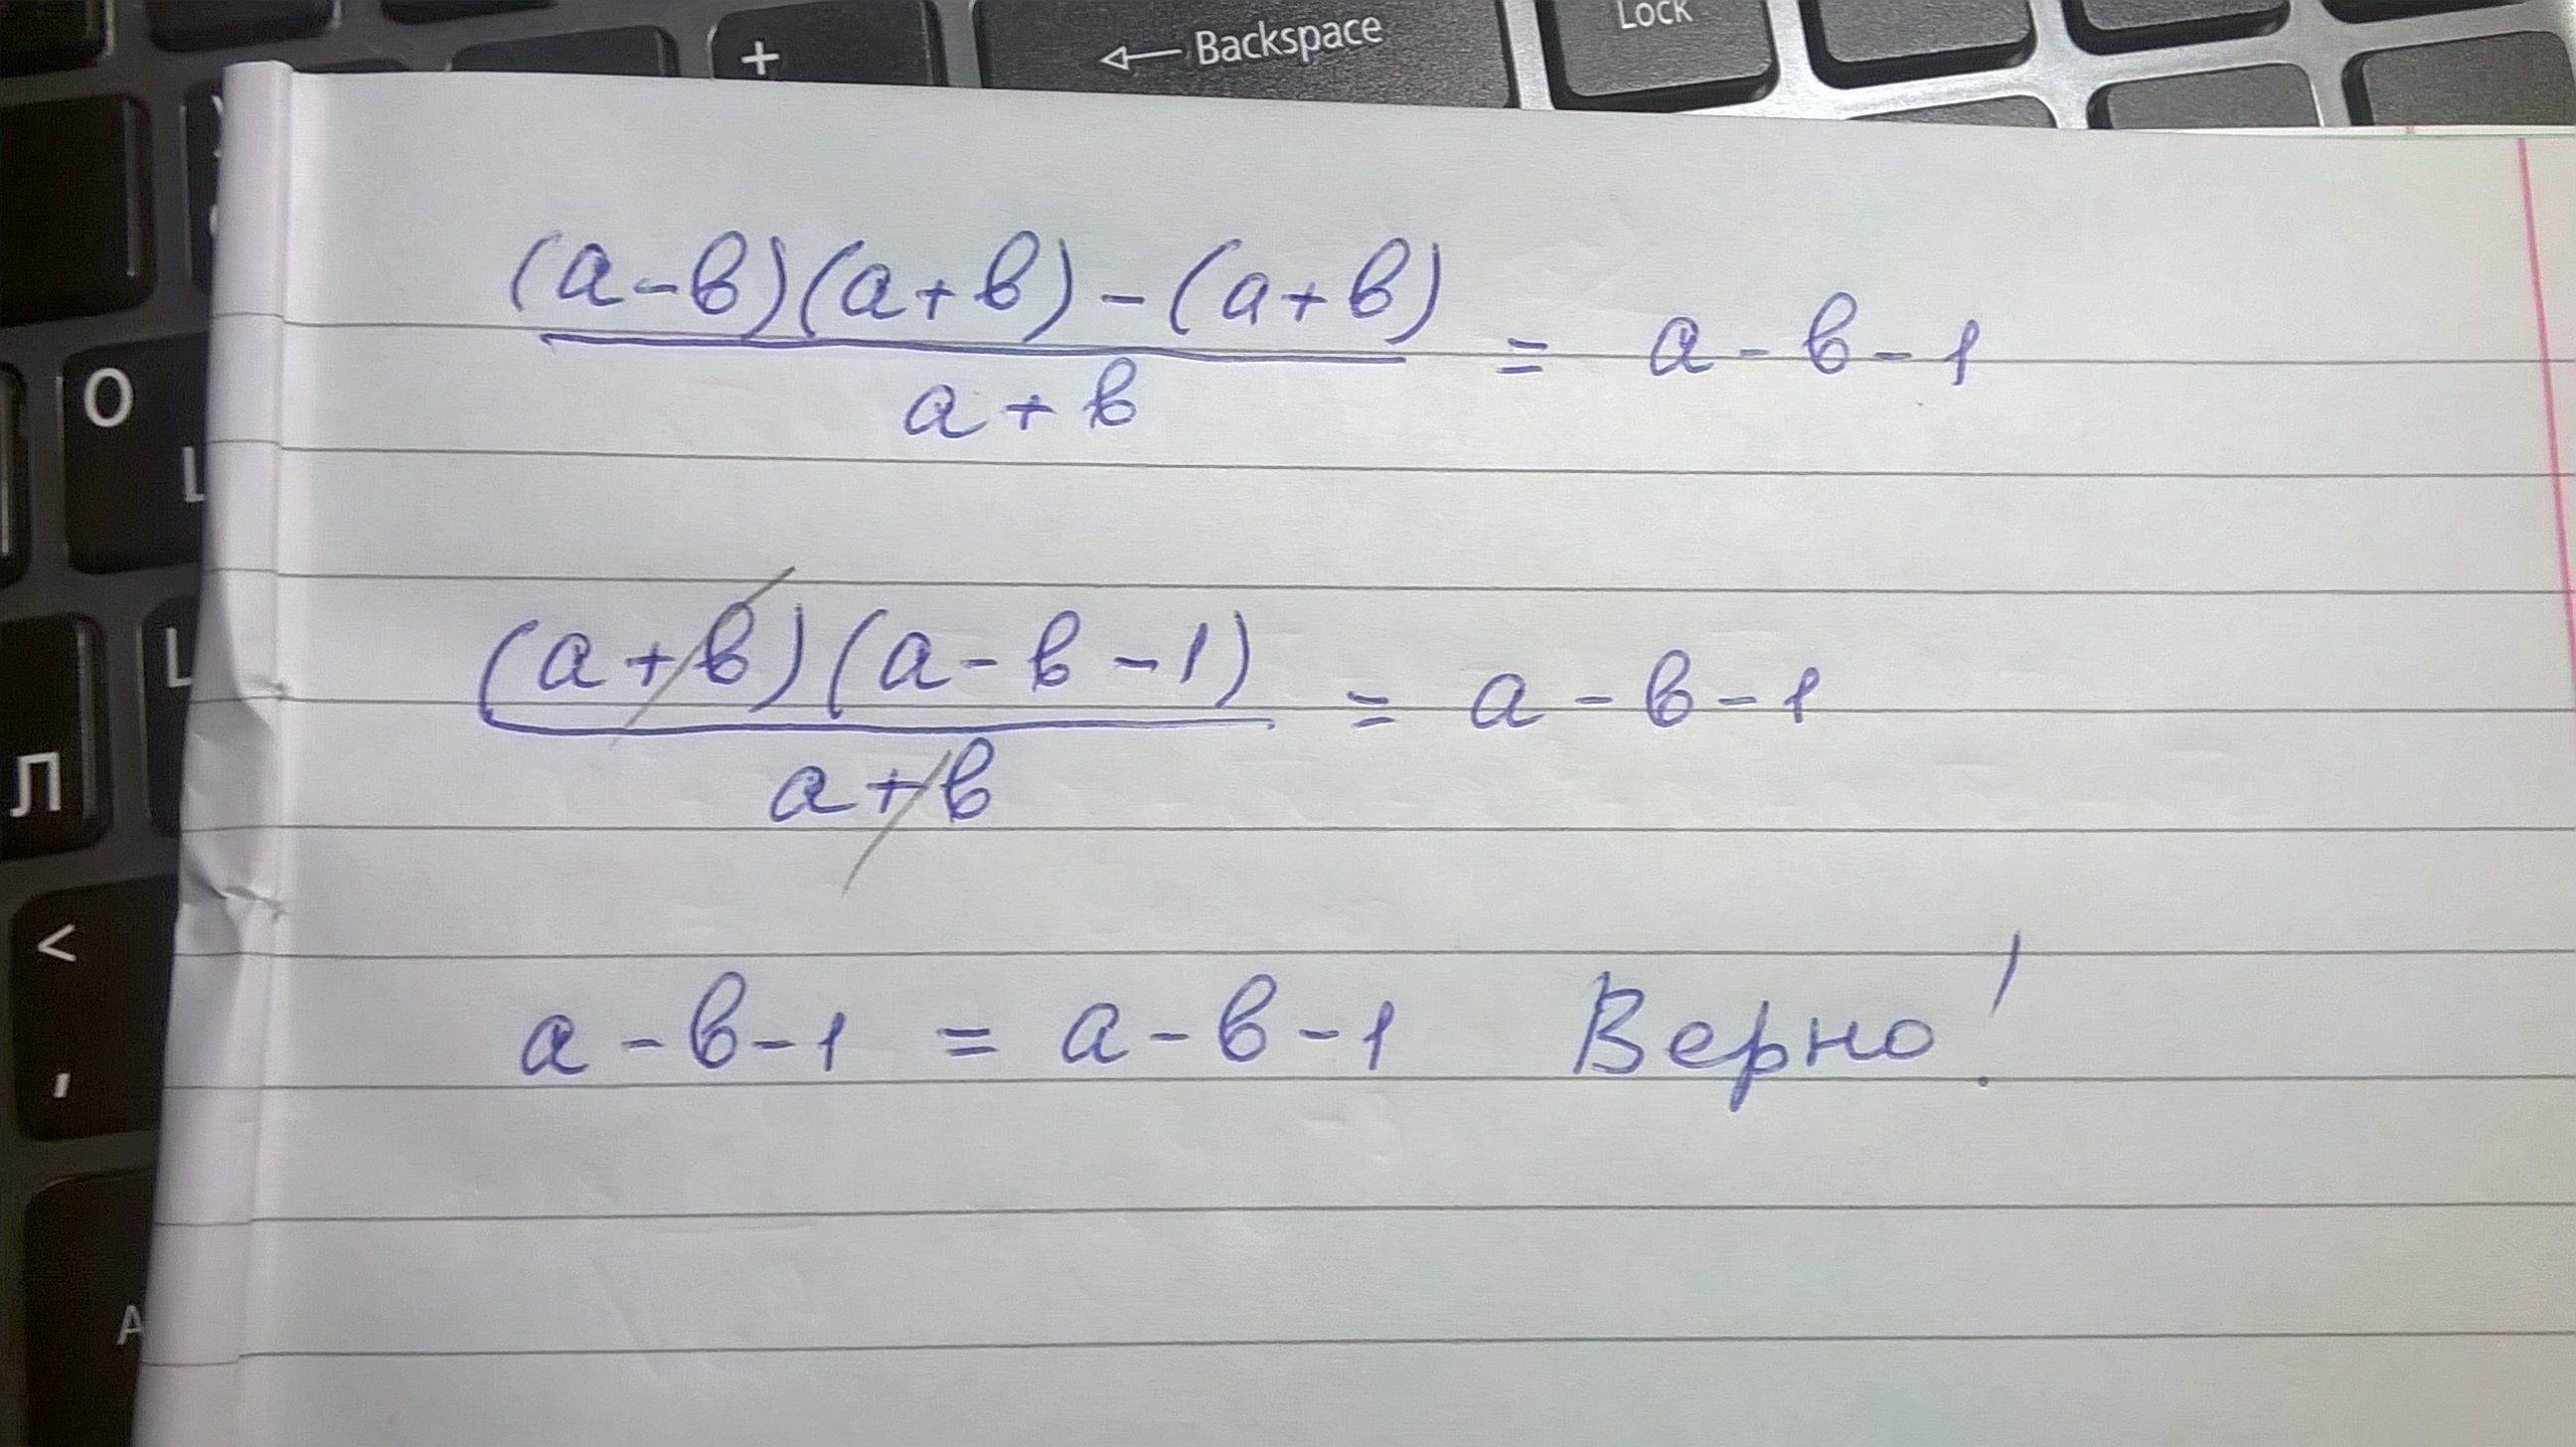 + ← Backspace Lock
О
Л
<
(а-в)(а+в)-(а+в)
а+в
= а-в-1
(а+в)(а-в-1)
а+в
= а-в-1
а-в-1 = а-в-1 Верно!